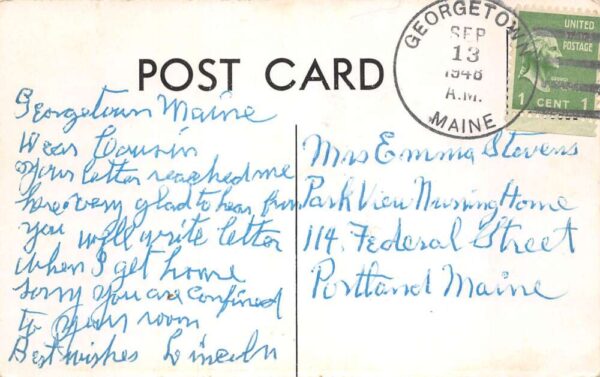 POST CARD
GEORGETOWN
SEP
13
1948
A.M.
MAINE
UNITED
POSTAGE
1 CENT 1
Georgetown Maine
Dear Cousin
Your letter reached me
here very glad to hear from
you will write letter
when I get home
sorry you are confined
to your room
Best wishes Lincoln
Mrs Emma Stevens
Park View Nursing Home
114. Federal Street
Portland Maine